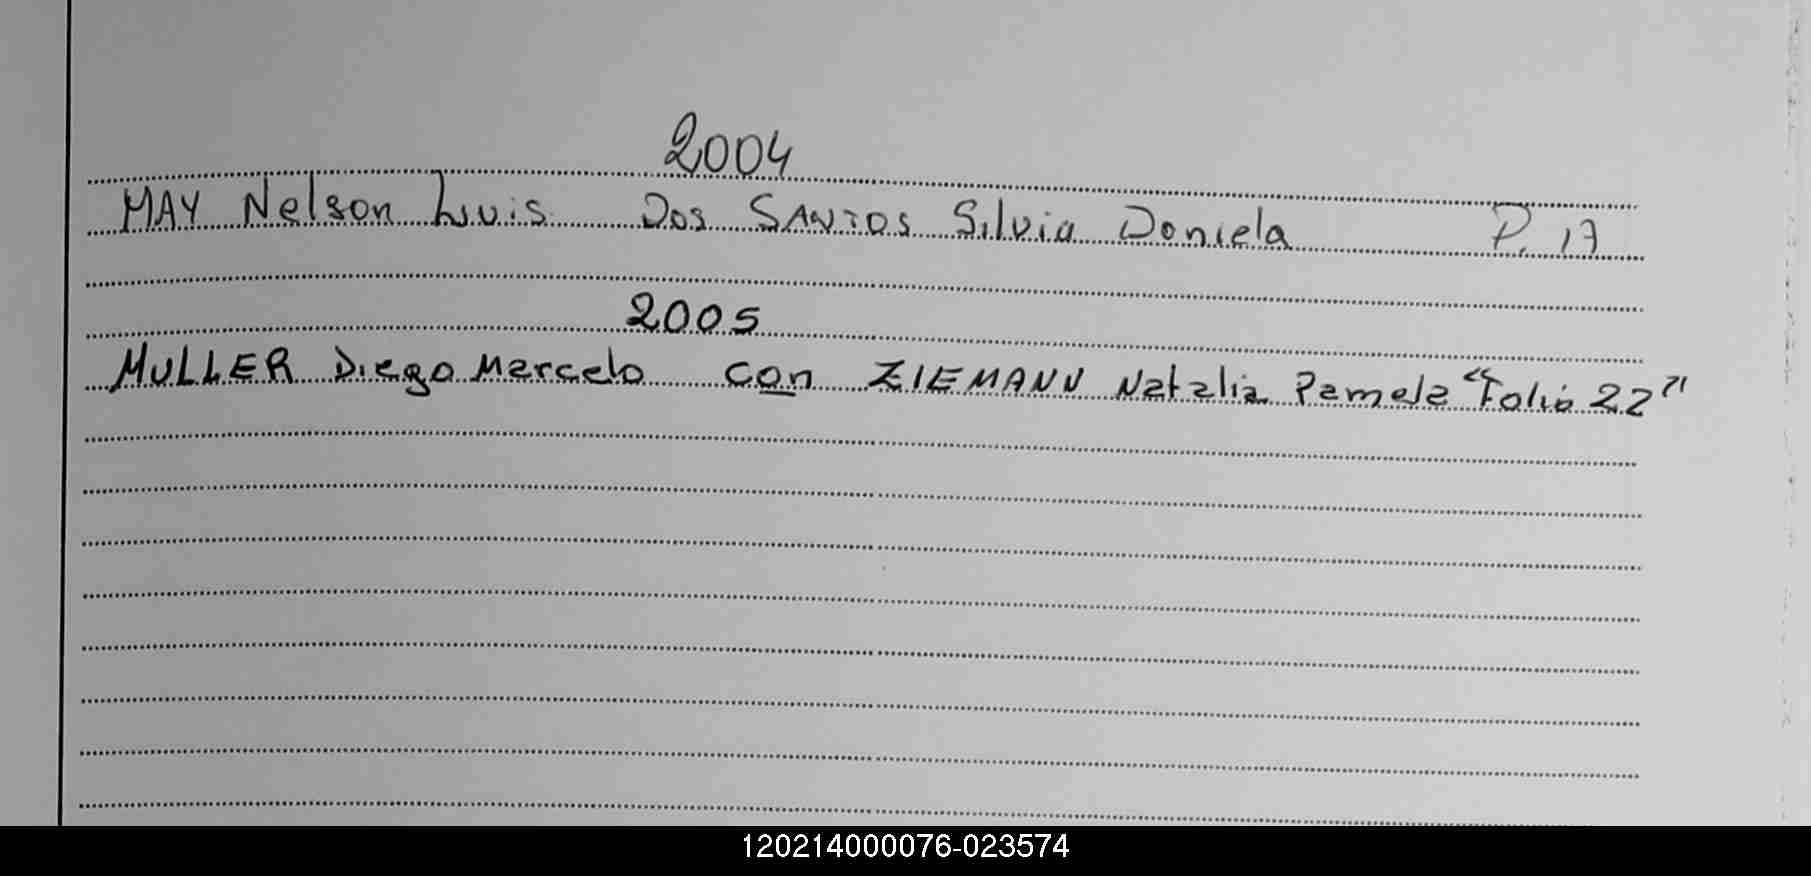 2004
MAY Nelson Luis Dos SANTOS Silvia Daniela P. 17
2005
MULLER Diego Marcelo con ZIEMANN Natalia Pamela "Folio 22"
120214000076-023574